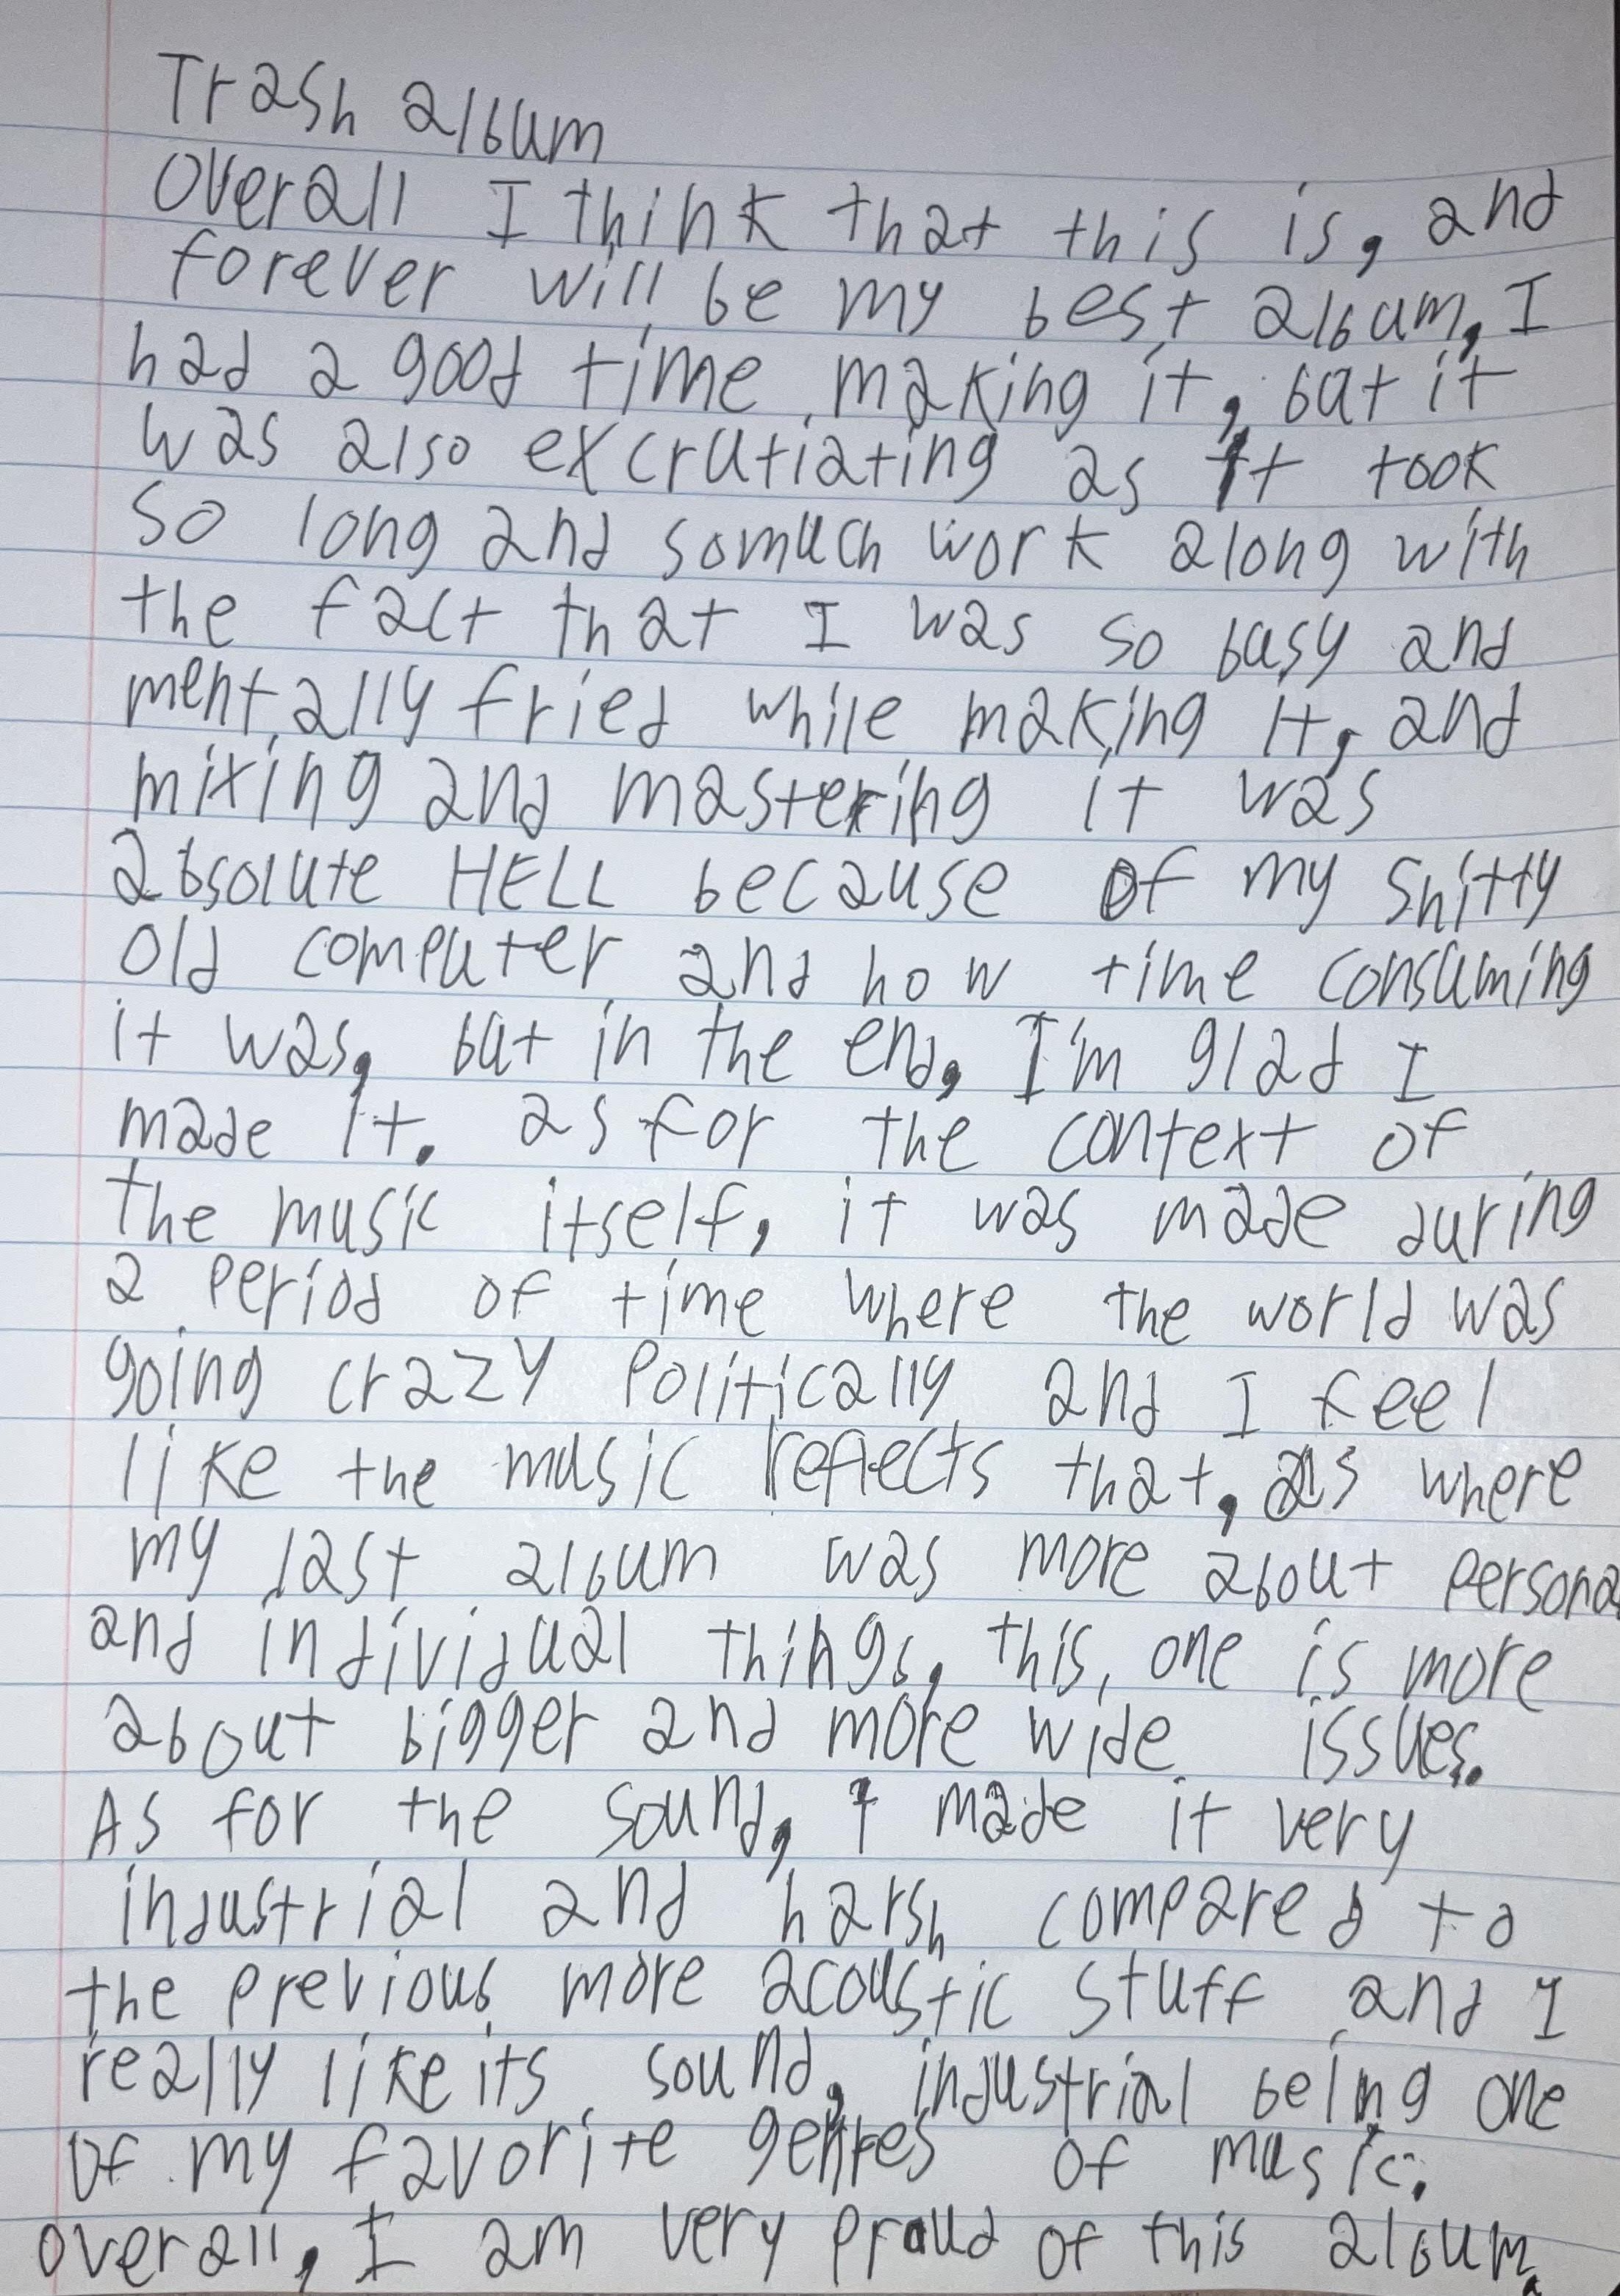 Trash album
Overall I think that this is, and
forever will be my best album, I
had a good time making it, but it
was also excrutiating as it took
so long and somuch work along with
the fact that I was so busy and
mentally fried while making it, and
mixing and mastering it was
absolute HELL because of my shitty
old computer and how time consuming
it was, but in the end, I'm glad I
made it. as for the context of
the music itself, it was made during
a period of time where the world was
going crazy Politically and I feel
like the music reflects that, as where
my last album was more about persona
and individual things, this, one is more
about bigger and more wide issues.
As for the sound, I made it very
industrial and harsh compared to
the previous more acoustic stuff and I
really like its sound, industrial being one
of my favorite genres of music.
overall, I am very proud of this album.